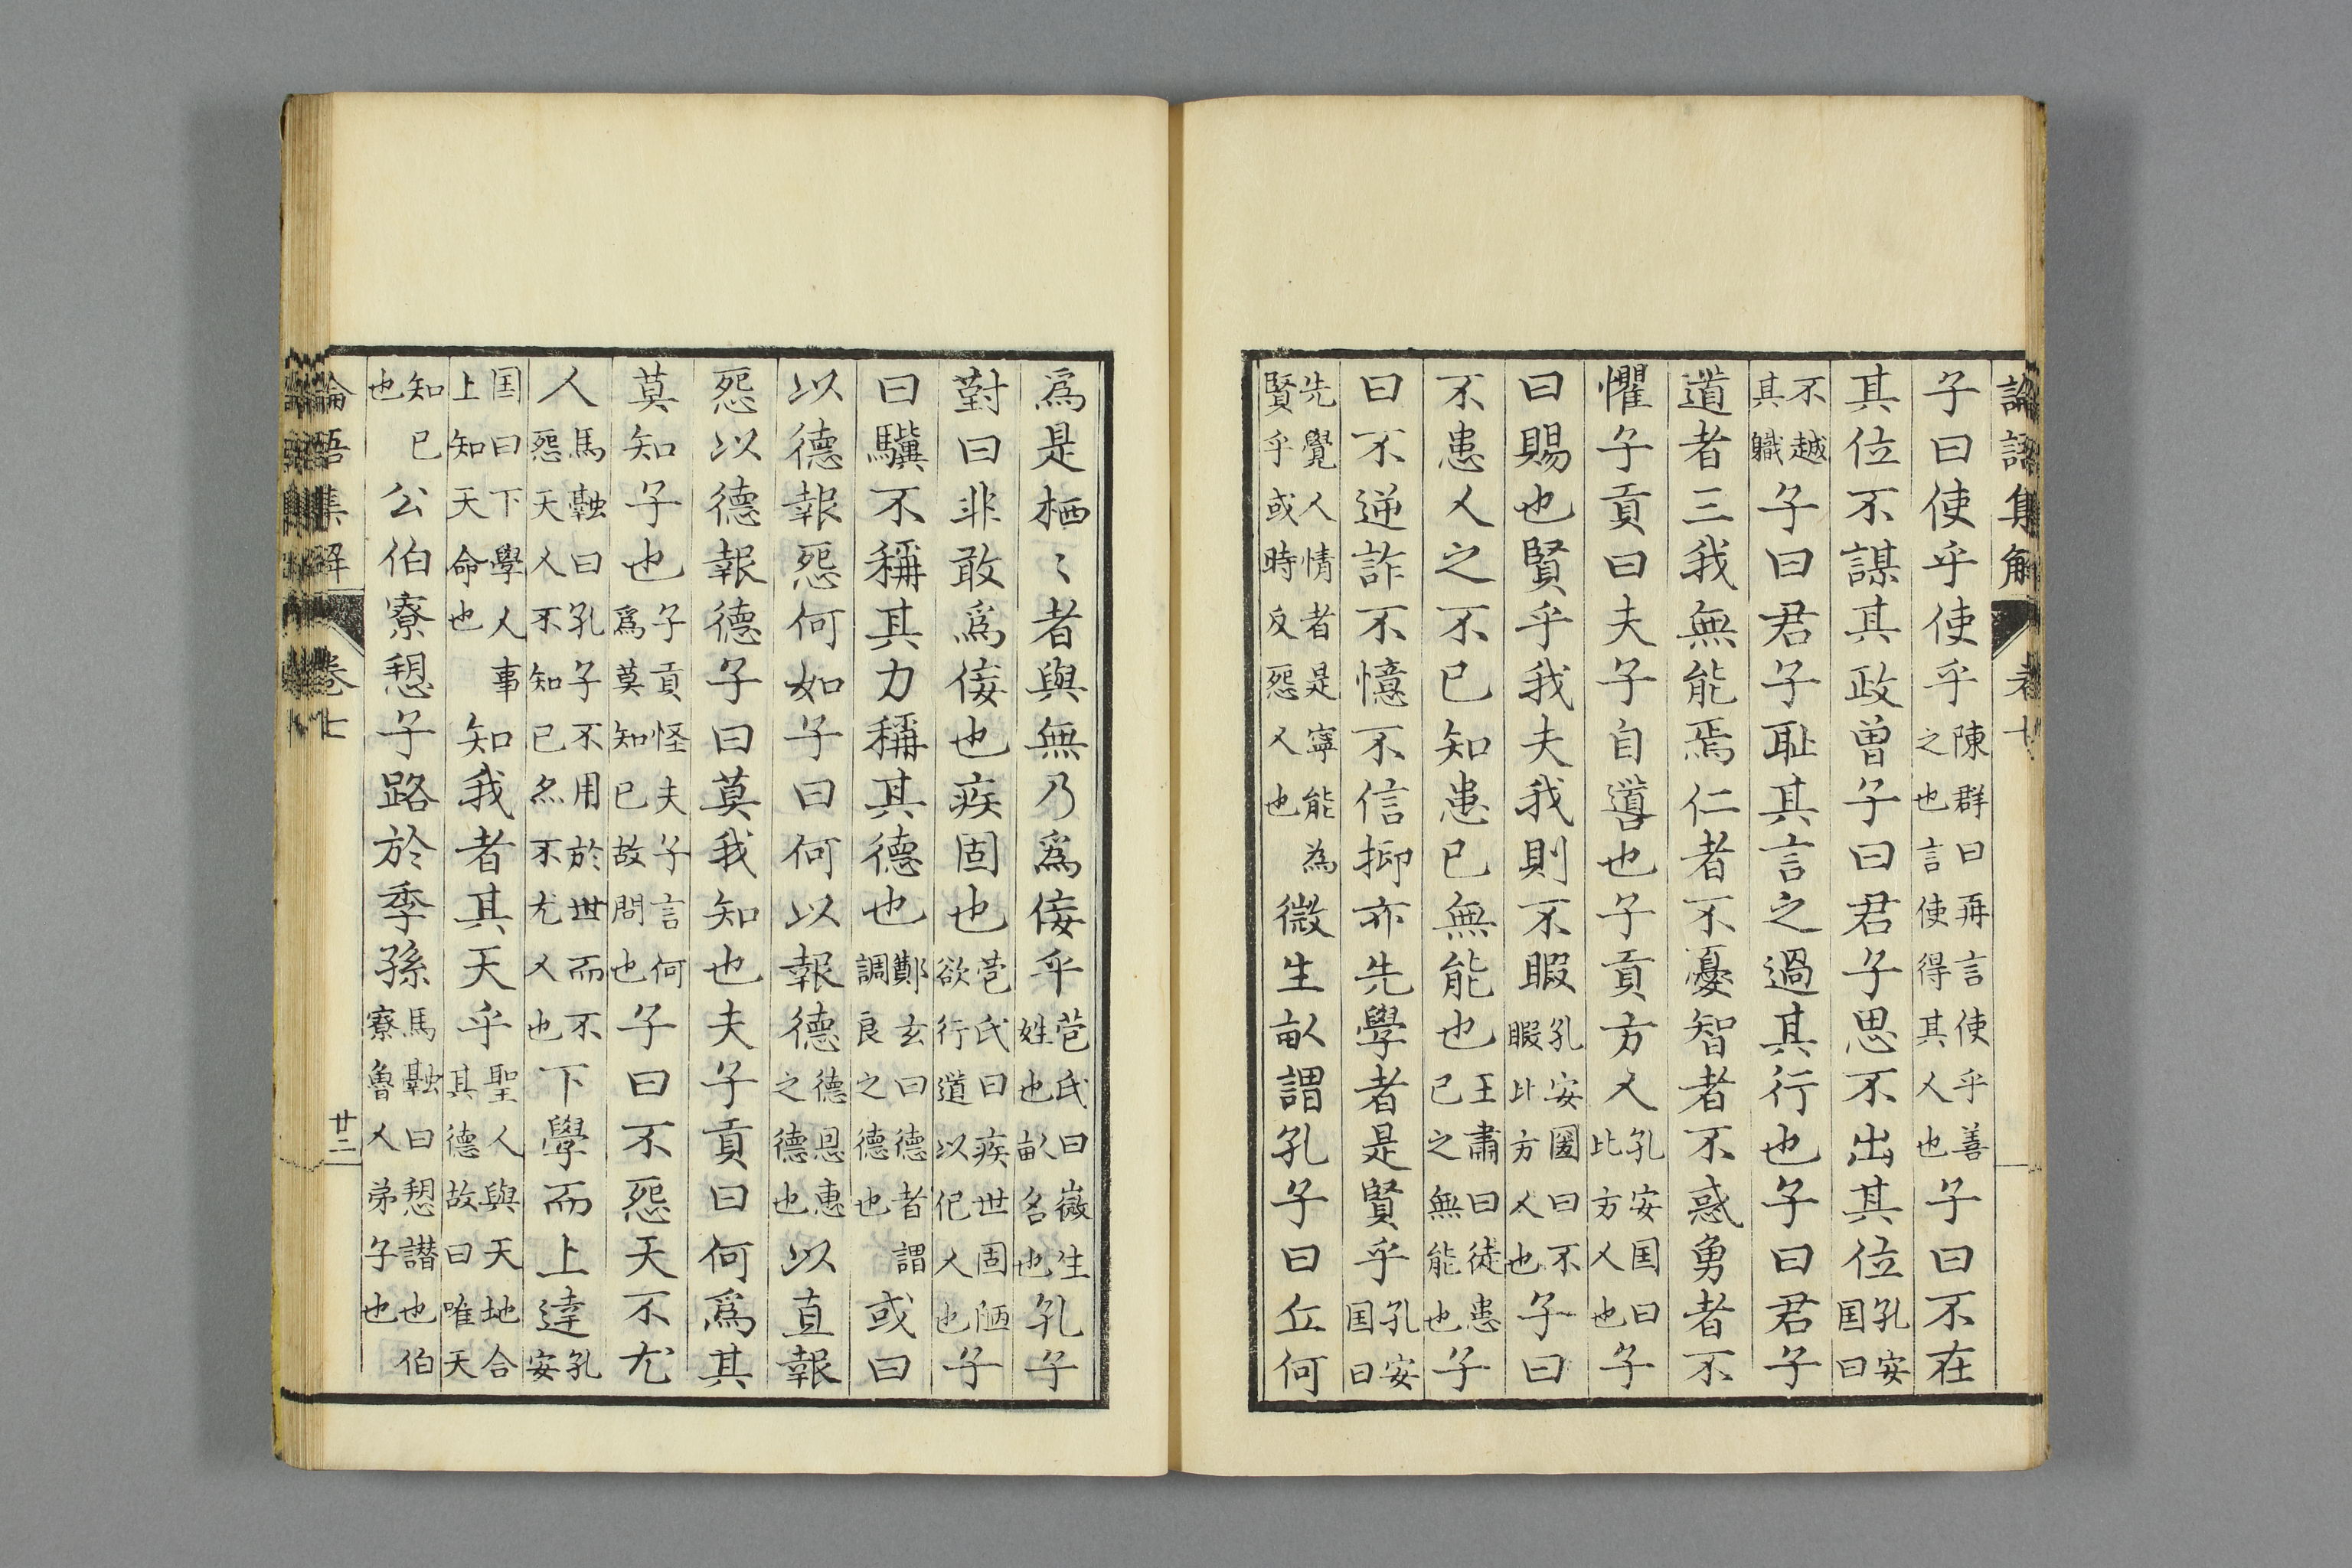 論語集解 卷七
子曰使乎使乎陳群曰再言使乎善之也言使得其人也子曰不在
其位不謀其政曽子曰君子思不出其位孔安国曰
不越其軄子曰君子耻其言之過其行也子曰君子
道者三我無能焉仁者不憂智者不惑勇者不
懼子貢曰夫子自噵也子貢方人孔安国曰比方人也子
曰賜也賢乎我夫我則不暇孔安圀曰不暇比方人也子曰
不患人之不己知患己無能也王肅曰徒患己之無能也子
曰不逆詐不憶不信抑亦先學者是賢乎孔安国曰
先覺人情者是寧能為賢乎或時反怨人也微生畒謂孔子曰丘何
爲是栖〻者與無乃爲佞乎苞氏曰薇生姓也畒名也孔子
對曰非敢爲佞也疾固也苞氏曰疾世固陋欲行道以化人也子
曰驥不稱其力稱其德也鄭玄曰德者謂調良之德也或曰
以德報怨何如子曰何以報德德恩惠之德也以直報
怨以德報德子曰莫我知也夫子貢曰何爲其
莫知子也子貢怪夫子言何爲莫知己故問也子曰不怨天不尤
人馬融曰孔子不用於世而不怨天人不知己亦不尤人也下學而上達孔安
国曰下學人事上知天命也知我者其天乎聖人與天地合其德故曰唯天
知己也公伯寮愬子路於季孫馬融曰愬譖也伯寮魯人弟子也
論語集解 卷七 廿二